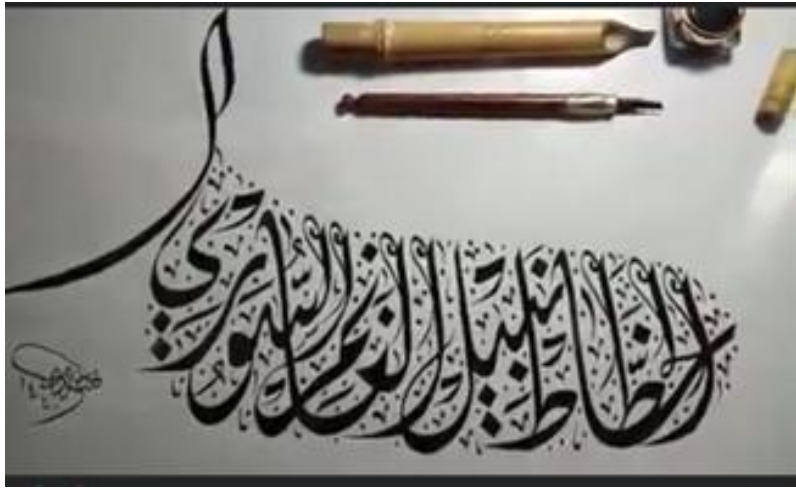 الخطاط نبيل الغانم السوري